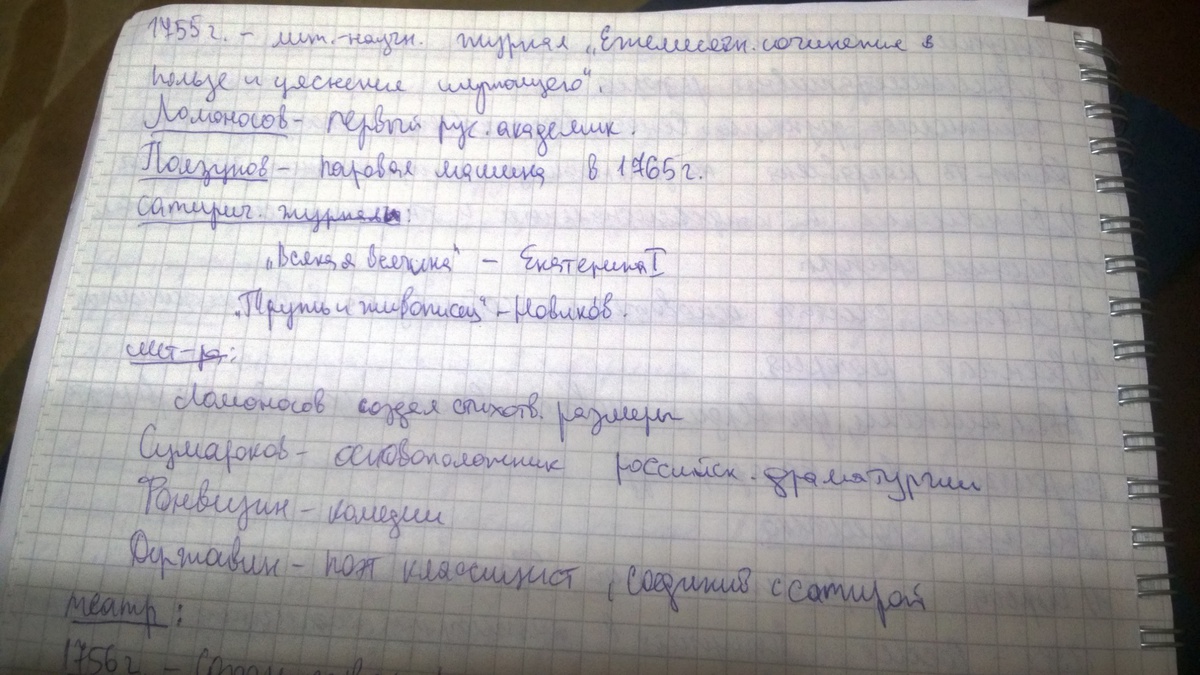 1755г. – лит.-научн. журнал „Ежемесячн. сочинение в
пользе и увеснение служащего“.
Ломоносов – первый рус. академик.
Ползунов – паровая машина в 1765г.
сатирич. журналы:
„Всякая всячина“ – Екатерина I
„Трутнь и живописец“ – Новиков.
лит-ра:
Ломоносов создал стихотв. размеры
Сумароков – основоположник российск. драматургии
Фонвизин – комедии
Державин – поэт классицист, соединив с сатирой
театр:
1756г. –